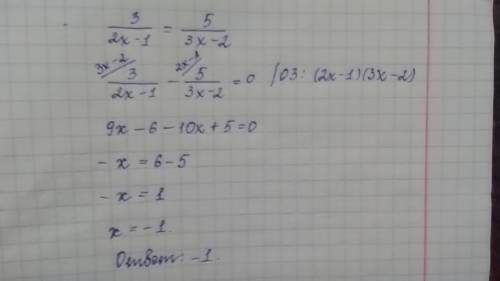 3/(2x-1) = 5/(3x-2)
3x-2/ 3/(2x-1) - 2x-1/ 5/(3x-2) = 0 / ОЗ: (2x-1)(3x-2)
9x-6-10x+5=0
-x = 6-5
-x = 1
x = -1.
Ответ: -1.